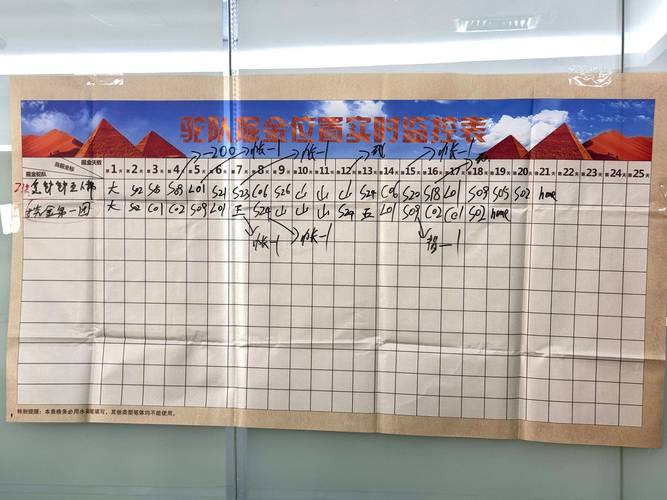 驼队掘金位置实时监控表
-200 帐-1 帐-1 帐-1
掘金天数
当前坐标
掘金驼队
第1天 第2天 第3天 第4天 第5天 第6天 第7天 第8天 第9天 第10天 第11天 第12天 第13天 第14天 第15天 第16天 第17天 第18天 第19天 第20天 第21天 第22天 第23天 第24天 第25天
大 S02 S05 S09 L01 S21 S23 C06 S26 山 山 山 S24 C06 S20 S18 L01 S09 S05 S02 home
掘金第一团 大 S02 C01 C02 S09 L01 五 S24 山 山 山 S24 五 L01 S09 C02 C01 S02 home
帐-1 帐-1 -1
特别提醒:本表格务必用水彩笔填写,其他类型笔体均不能使用。